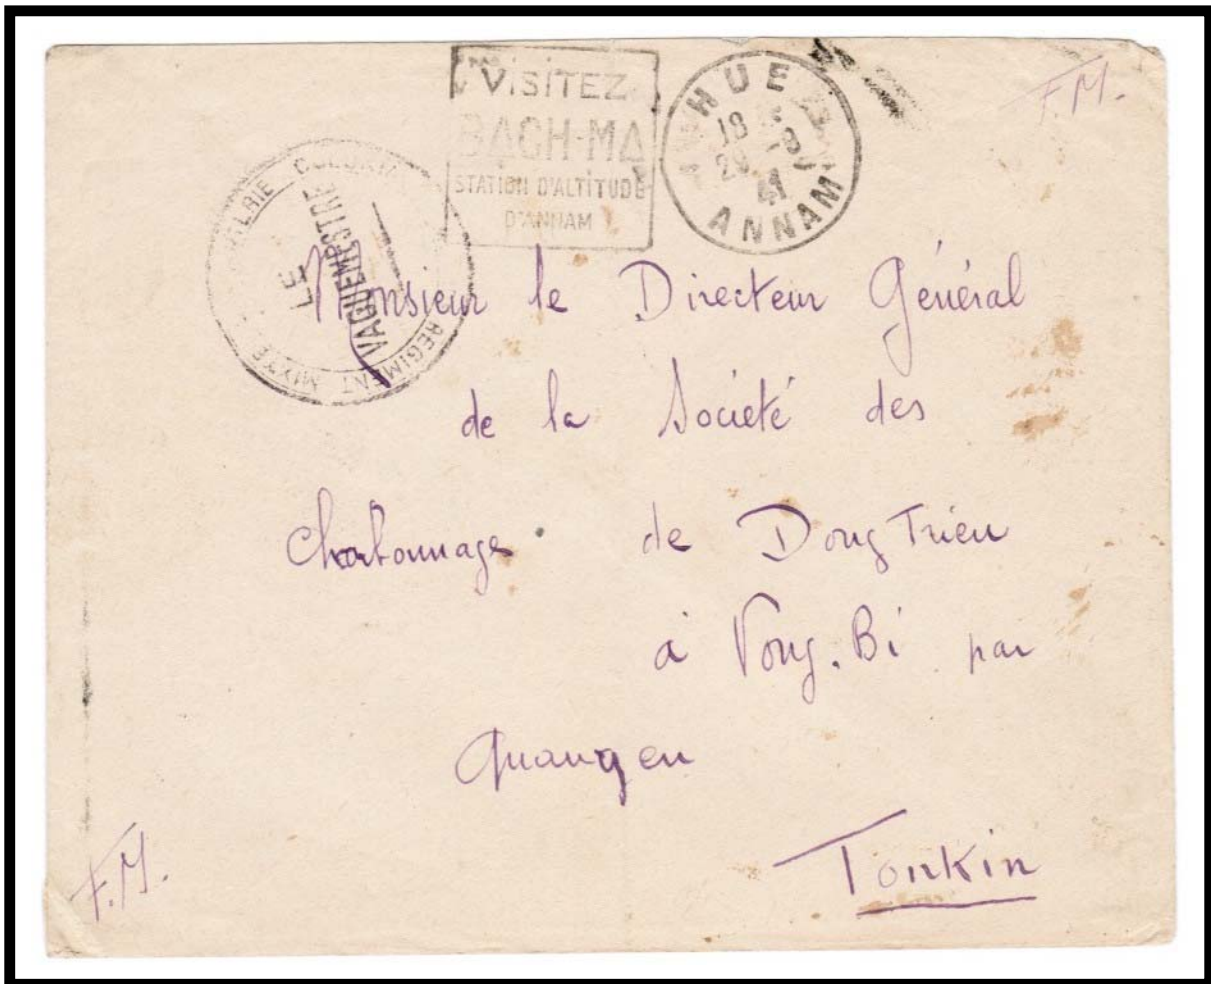 VISITEZ
BACH-MA
STATION D'ALTITUDE
D'ANNAM
HUE
18
41
ANNAM
F.M.
COLONIALE
REGIMENT MIXTE
LE
VAGUEMESTRE
Monsieur le Directeur Général
de la Société des
Charbonnage de Dong Trieu
à Vong. Bi par
Quangyen
Tonkin
F.M.